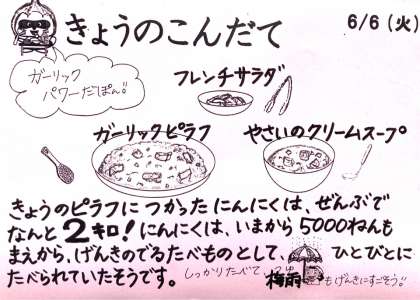 きょうのこんだて
6/6(火)
ガーリック
パワーだぽん!!
フレンチサラダ
ガーリックピラフ
やさいのクリームスープ
きょうのピラフにつかったにんにくは、ぜんぶで
なんと2キロ!にんにくは、いまから5000ねんも
まえから、げんきのでるたべものとして、ひとびとに
たべられていたそうです。
しっかりたべて、梅雨もげんきにすごそう!!